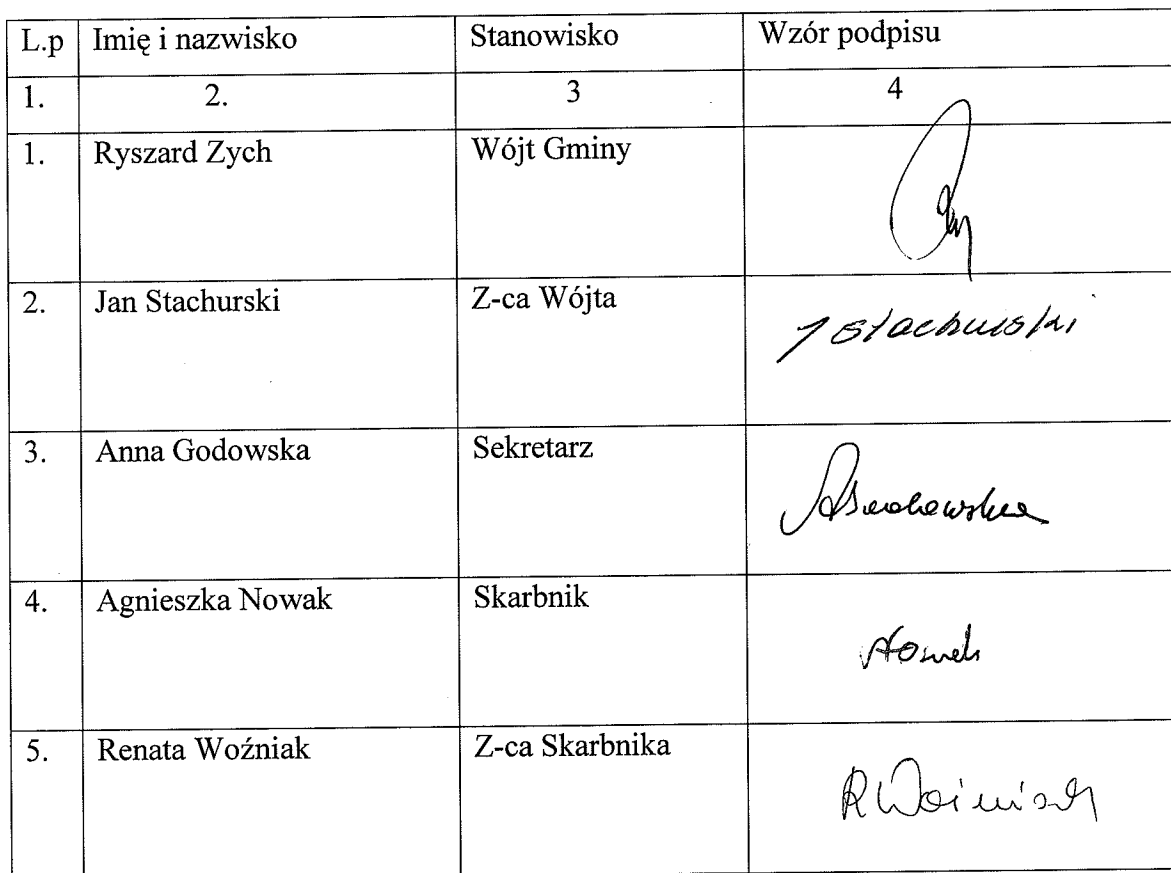 L.p Imię i nazwisko Stanowisko Wzór podpisu
1. 2. 3 4
1. Ryszard Zych Wójt Gminy
2. Jan Stachurski Z-ca Wójta J Stachurski
3. Anna Godowska Sekretarz
4. Agnieszka Nowak Skarbnik Nowak
5. Renata Woźniak Z-ca Skarbnika R Woźniak